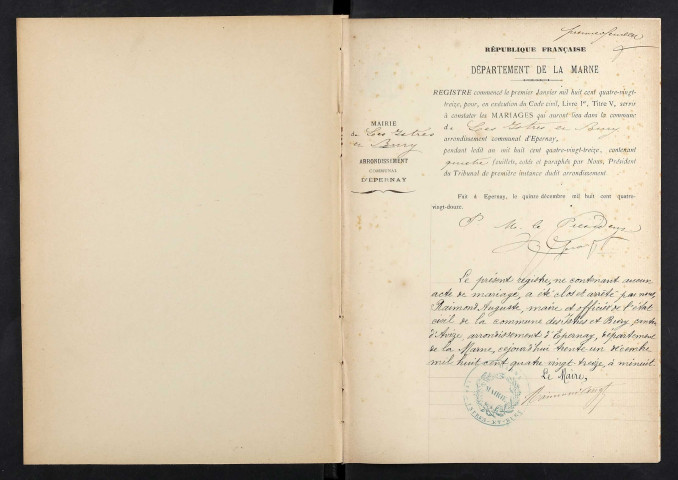 RÉPUBLIQUE FRANÇAISE
DÉPARTEMENT DE LA MARNE
REGISTRE commencé le premier Janvier mil huit cent quatre-vingt-
treize, pour, en exécution du Code civil, Livre Ier, Titre V, servir
à constater les MARIAGES qui auront lieu dans la commune
de Les Istres et Bury
arrondissement communal d'Epernay,
pendant ledit an mil huit cent quatre-vingt-treize, contenant
quatre feuillets, cotés et paraphés par Nous, Président
du Tribunal de première instance dudit arrondissement
Fait à Epernay, le quinze décembre mil huit cent quatre-
vingt-douze.
MAIRIE
de Les Istres
et Bury
ARRONDISSEMENT
COMMUNAL
D'EPERNAY
P. M. le Président
Le présent registre, ne contenant aucun
acte de mariage, a été clos et arrêté par nous,
Raimond Auguste, maire et officier de l'état
civil de la commune des Istres et Bury, canton
d'Avize, arrondissement d'Epernay, département
de la Marne, cejourd'hui trente un décembre
mil huit cent quatre vingt treize, à minuit.
Le Maire,
MAIRIE